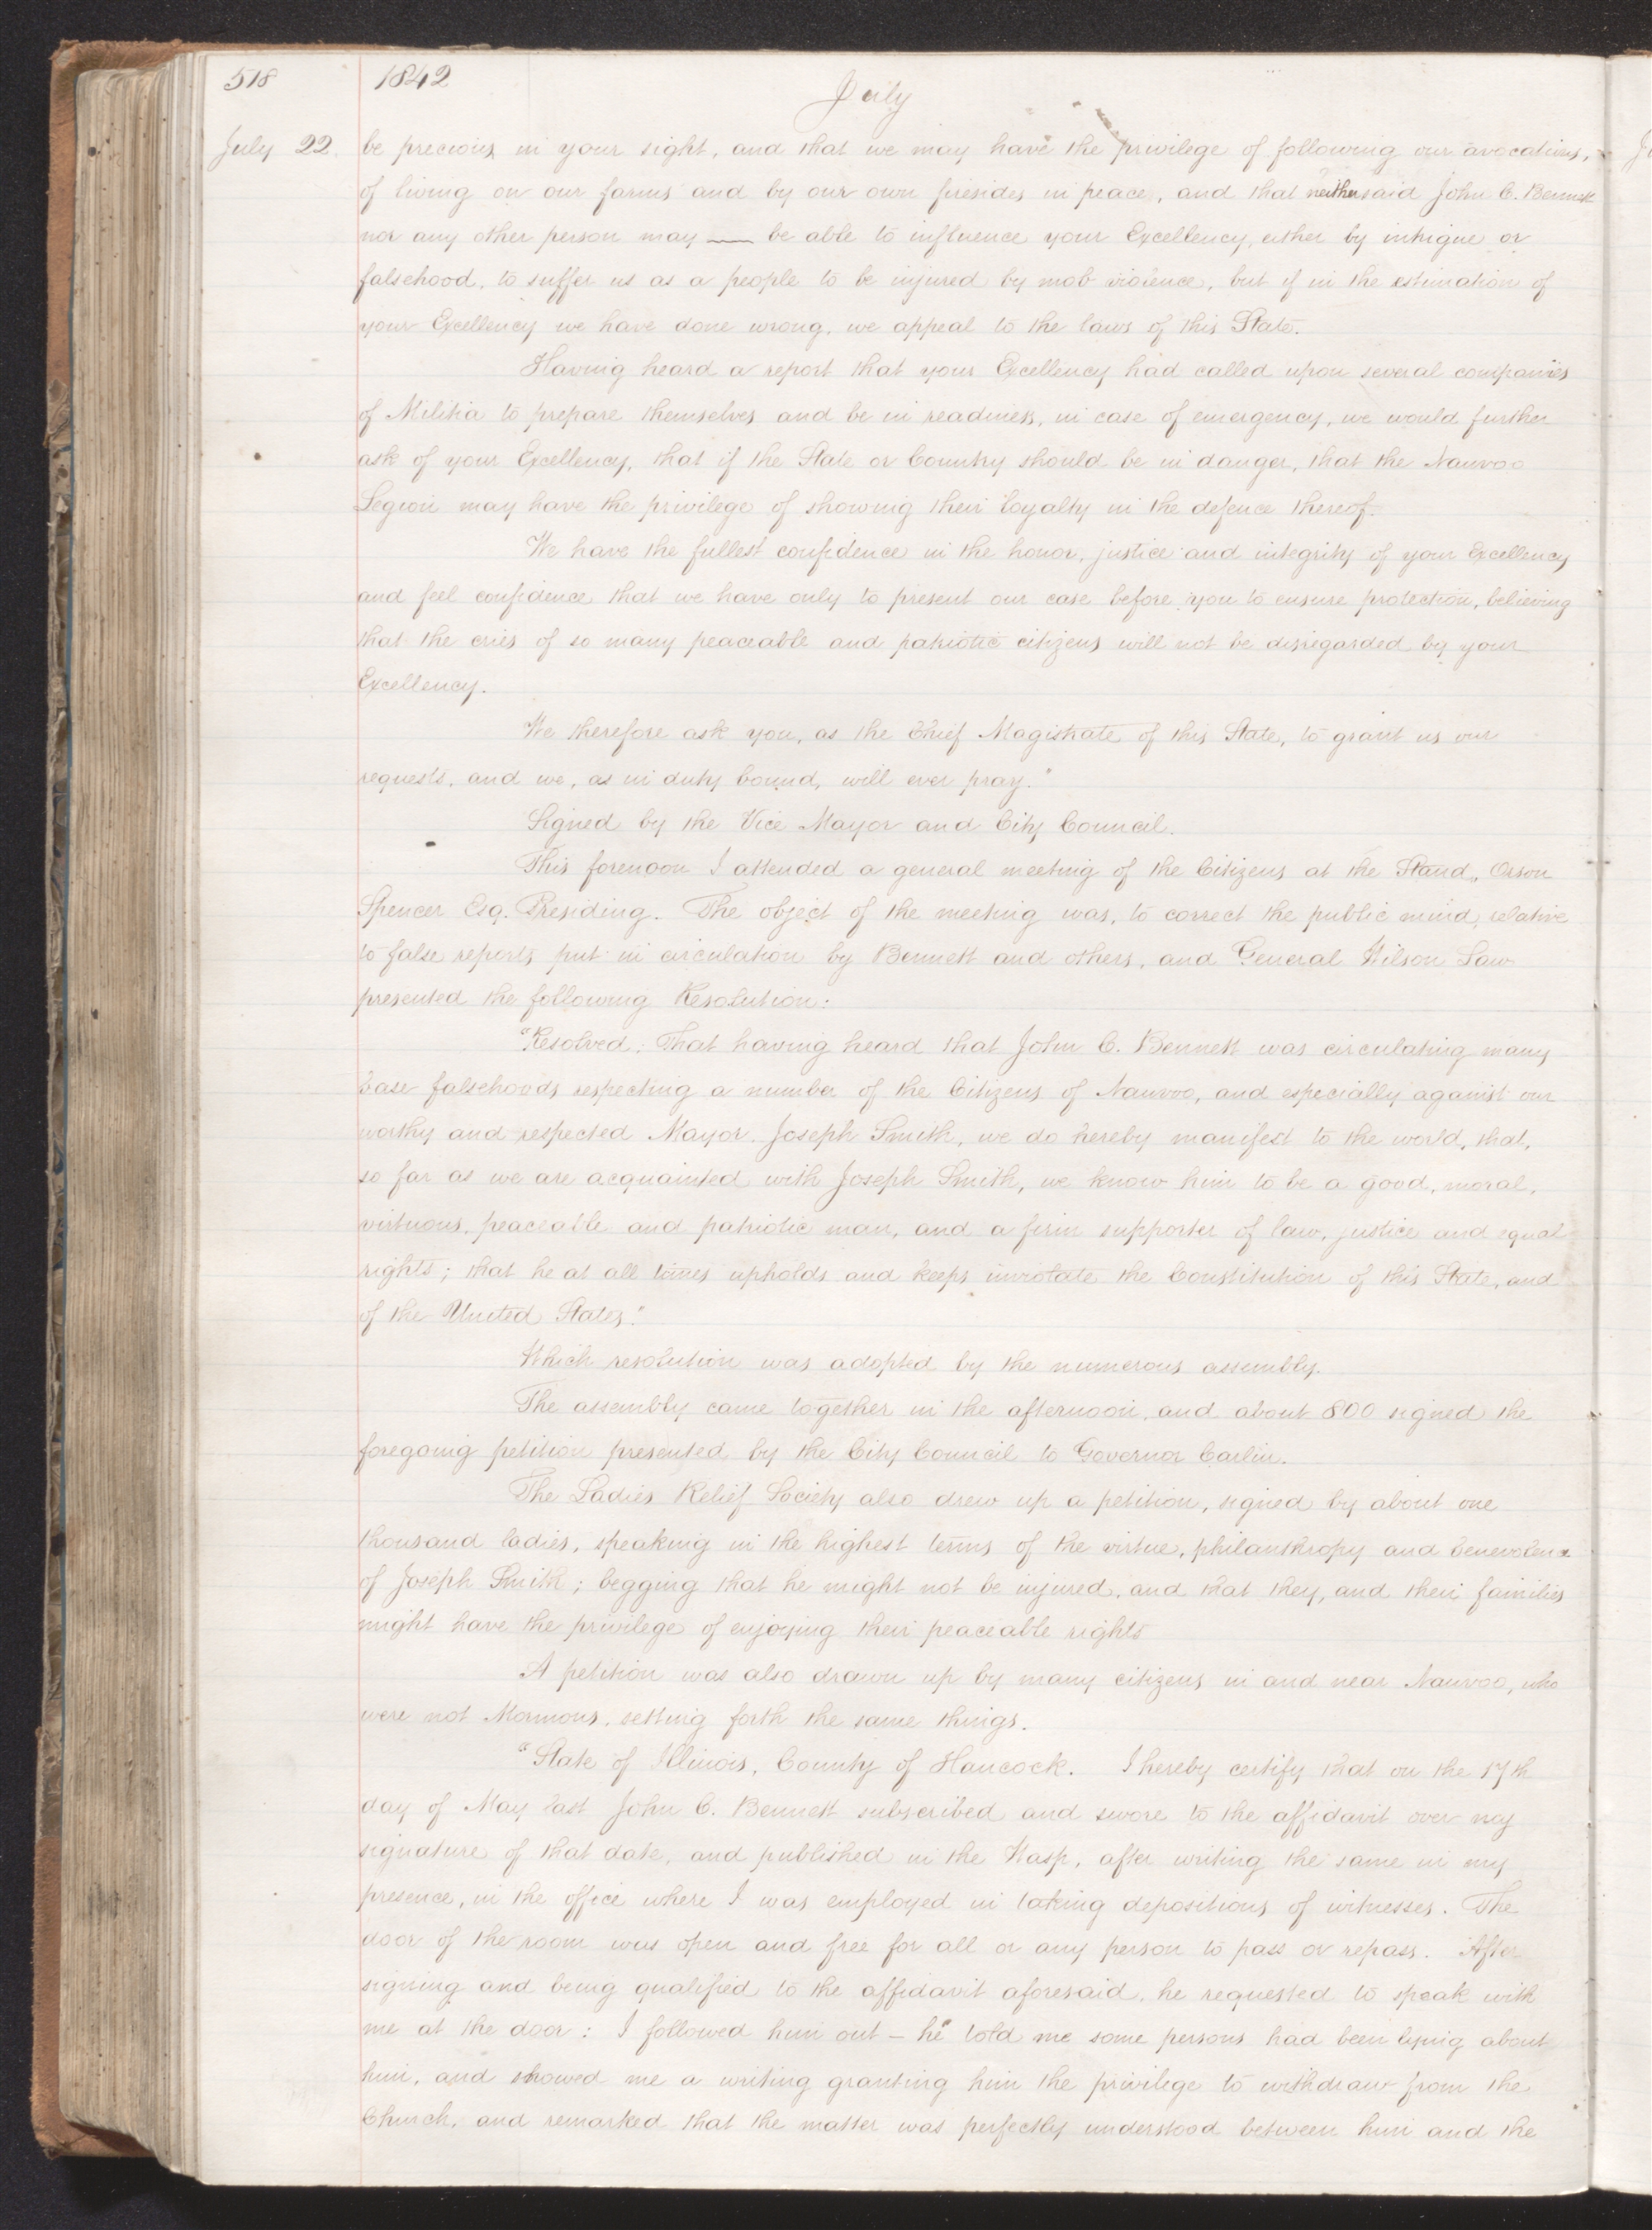 518 1842 July
July 22. be precious in your sight, and that we may have the privilege of following our avocations,
of living on our farms and by our own firesides in peace, and that neither said John C. Bennett
nor any other person may be able to influence your Excellency, either by intrigue or
falsehood, to suffer us as a people to be injured by mob violence, but if in the estimation of
your Excellency we have done wrong, we appeal to the laws of this State.
Having heard a report that your Excellency had called upon several companies
of Militia to prepare themselves and be in readiness, in case of emergency, we would further
ask of your Excellency, that if the State or Country should be in danger, that the Nauvoo
Legion may have the privilege of showing their loyalty in the defence thereof.
We have the fullest confidence in the honor, justice and integrity of your Excellency
and feel confidence that we have only to present our case before you to ensure protection, believing
that the cries of so many peaceable and patriotic citizens will not be disregarded by your
Excellency.
We therefore ask you, as the Chief Magistrate of this State, to grant us our
requests, and we, as in duty bound, will ever pray."
Signed by the Vice Mayor and City Council.
This forenoon I attended a general meeting of the Citizens at the Stand, Orson
Spencer Esq. Presiding. The object of the meeting was, to correct the public mind, relative
to false reports put in circulation by Bennett and others, and General Wilson Law
presented the following Resolution:
"Resolved; That having heard that John C. Bennett was circulating many
base falsehoods respecting a number of the Citizens of Nauvoo, and especially against our
worthy and respected Mayor, Joseph Smith, we do hereby manifest to the world, that,
so far as we are acquainted with Joseph Smith, we know him to be a good, moral,
virtuous, peaceable and patriotic man, and a firm supporter of law, justice and equal
rights; that he at all times upholds and keeps inviolate the Constitution of this State, and
of the United States."
Which resolution was adopted by the numerous assembly.
The assembly came together in the afternoon, and about 800 signed the
foregoing petition presented by the City Council to Governor Carlin.
The Ladies Relief Society also drew up a petition, signed by about one
thousand ladies, speaking in the highest terms of the virtue, philanthropy and benevolence
of Joseph Smith; begging that he might not be injured, and that they, and their families
might have the privilege of enjoying their peaceable rights
A petition was also drawn up by many citizens in and near Nauvoo, who
were not Mormons, setting forth the same things.
"State of Illinois, County of Hancock. I hereby certify that on the 17th
day of May last John C. Bennett subscribed and swore to the affidavit over my
signature of that date, and published in the Wasp, after writing the same in my
presence, in the office where I was employed in taking depositions of witnesses. The
door of the room was open and free for all or any person to pass or repass. After
signing and being qualified to the affidavit aforesaid, he requested to speak with
me at the door: I followed him out – he told me some persons had been lying about
him, and showed me a writing granting him the privilege to withdraw from the
Church, and remarked that the matter was perfectly understood between him and the